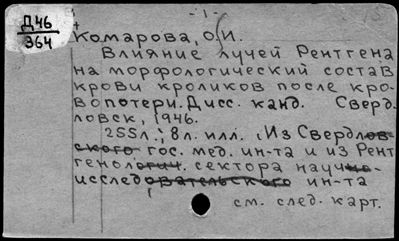 - 1 -
Д46
364
Комарова, О. И.
Влияние лучей Рентгена
на морфологический состав
крови кроликов после кро-
вопотери. Дисс. канд. Сверд-
ловск, 1946.
255л.; 8л. илл. (Из Свердлов-
ского гос. мед. ин-та и из Рент
генологич. сектора научно-
исследовательского ин-та
см. след. карт.